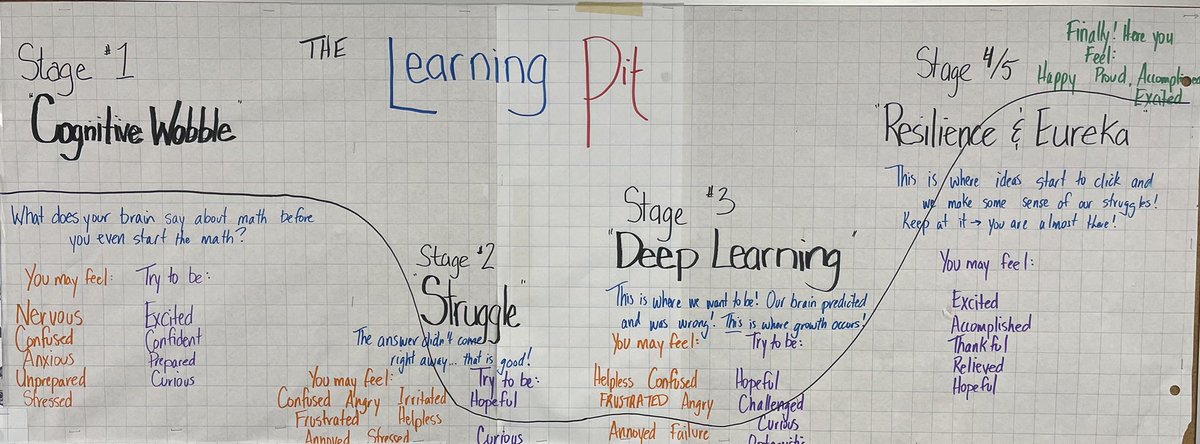 THE Learning Pit
Stage #1
"Cognitive Wobble"
What does your brain say about math before
you even start the math?
You may feel:
Nervous
Confused
Anxious
Unprepared
Stressed
Try to be:
Excited
Confident
Prepared
Curious
Stage #2
"Struggle"
The answer didn't come
right away... that is good!
You may feel:
Confused Angry Irritated
Frustrated Helpless
Annoyed Stressed
Try to be:
Hopeful
Curious
Stage #3
"Deep Learning"
This is where we want to be! Our brain predicted
and was wrong! This is where growth occurs!
You may feel:
Helpless Confused
FRUSTRATED Angry
Annoyed Failure
Try to be:
Hopeful
Challenged
Curious
Stage 4/5
"Resilience & Eureka"
This is where ideas start to click and
we make some sense of our struggles!
Keep at it → you are almost there!
You may feel:
Excited
Accomplished
Thankful
Relieved
Hopeful
Finally! Here you
Feel:
Happy Proud, Accomplished
Excited